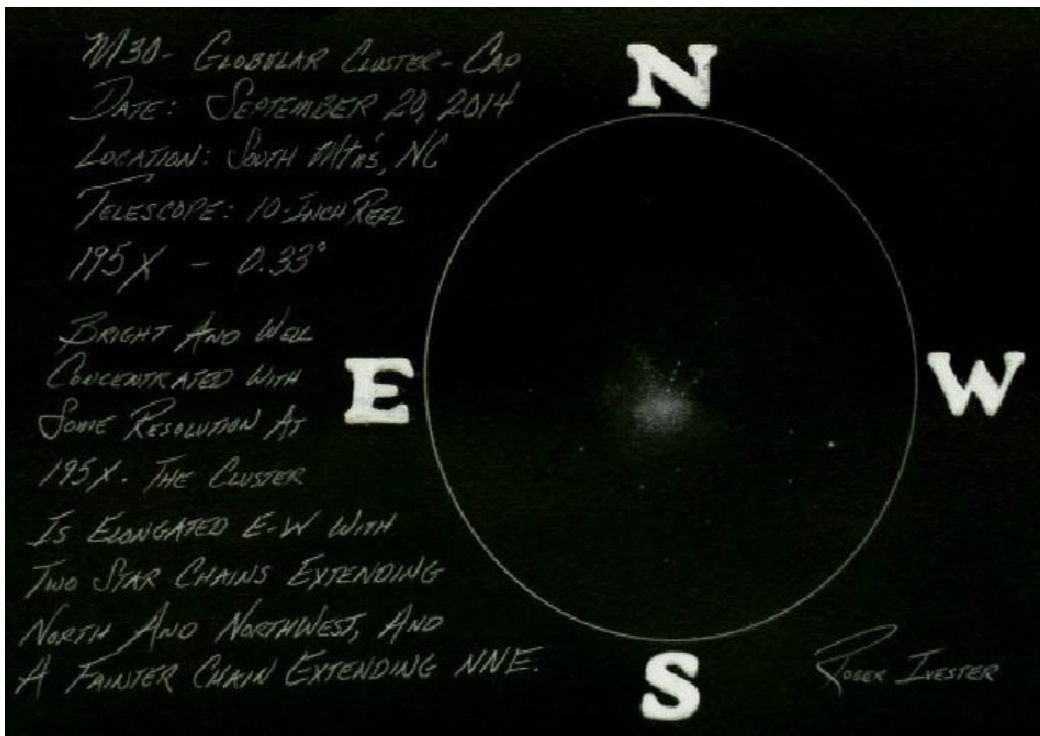 M30- GLOBULAR CLUSTER- CAP
DATE: SEPTEMBER 20, 2014
LOCATION: SOUTH MTN'S, NC
TELESCOPE: 10-INCH REFL
195X - 0.33°
BRIGHT AND WELL
CONCENTRATED WITH
SOME RESOLUTION AT
195X. THE CLUSTER
IS ELONGATED E-W WITH
TWO STAR CHAINS EXTENDING
NORTH AND NORTHWEST, AND
A FAINTER CHAIN EXTENDING NNE.
N
E
W
S
ROGER IVESTER